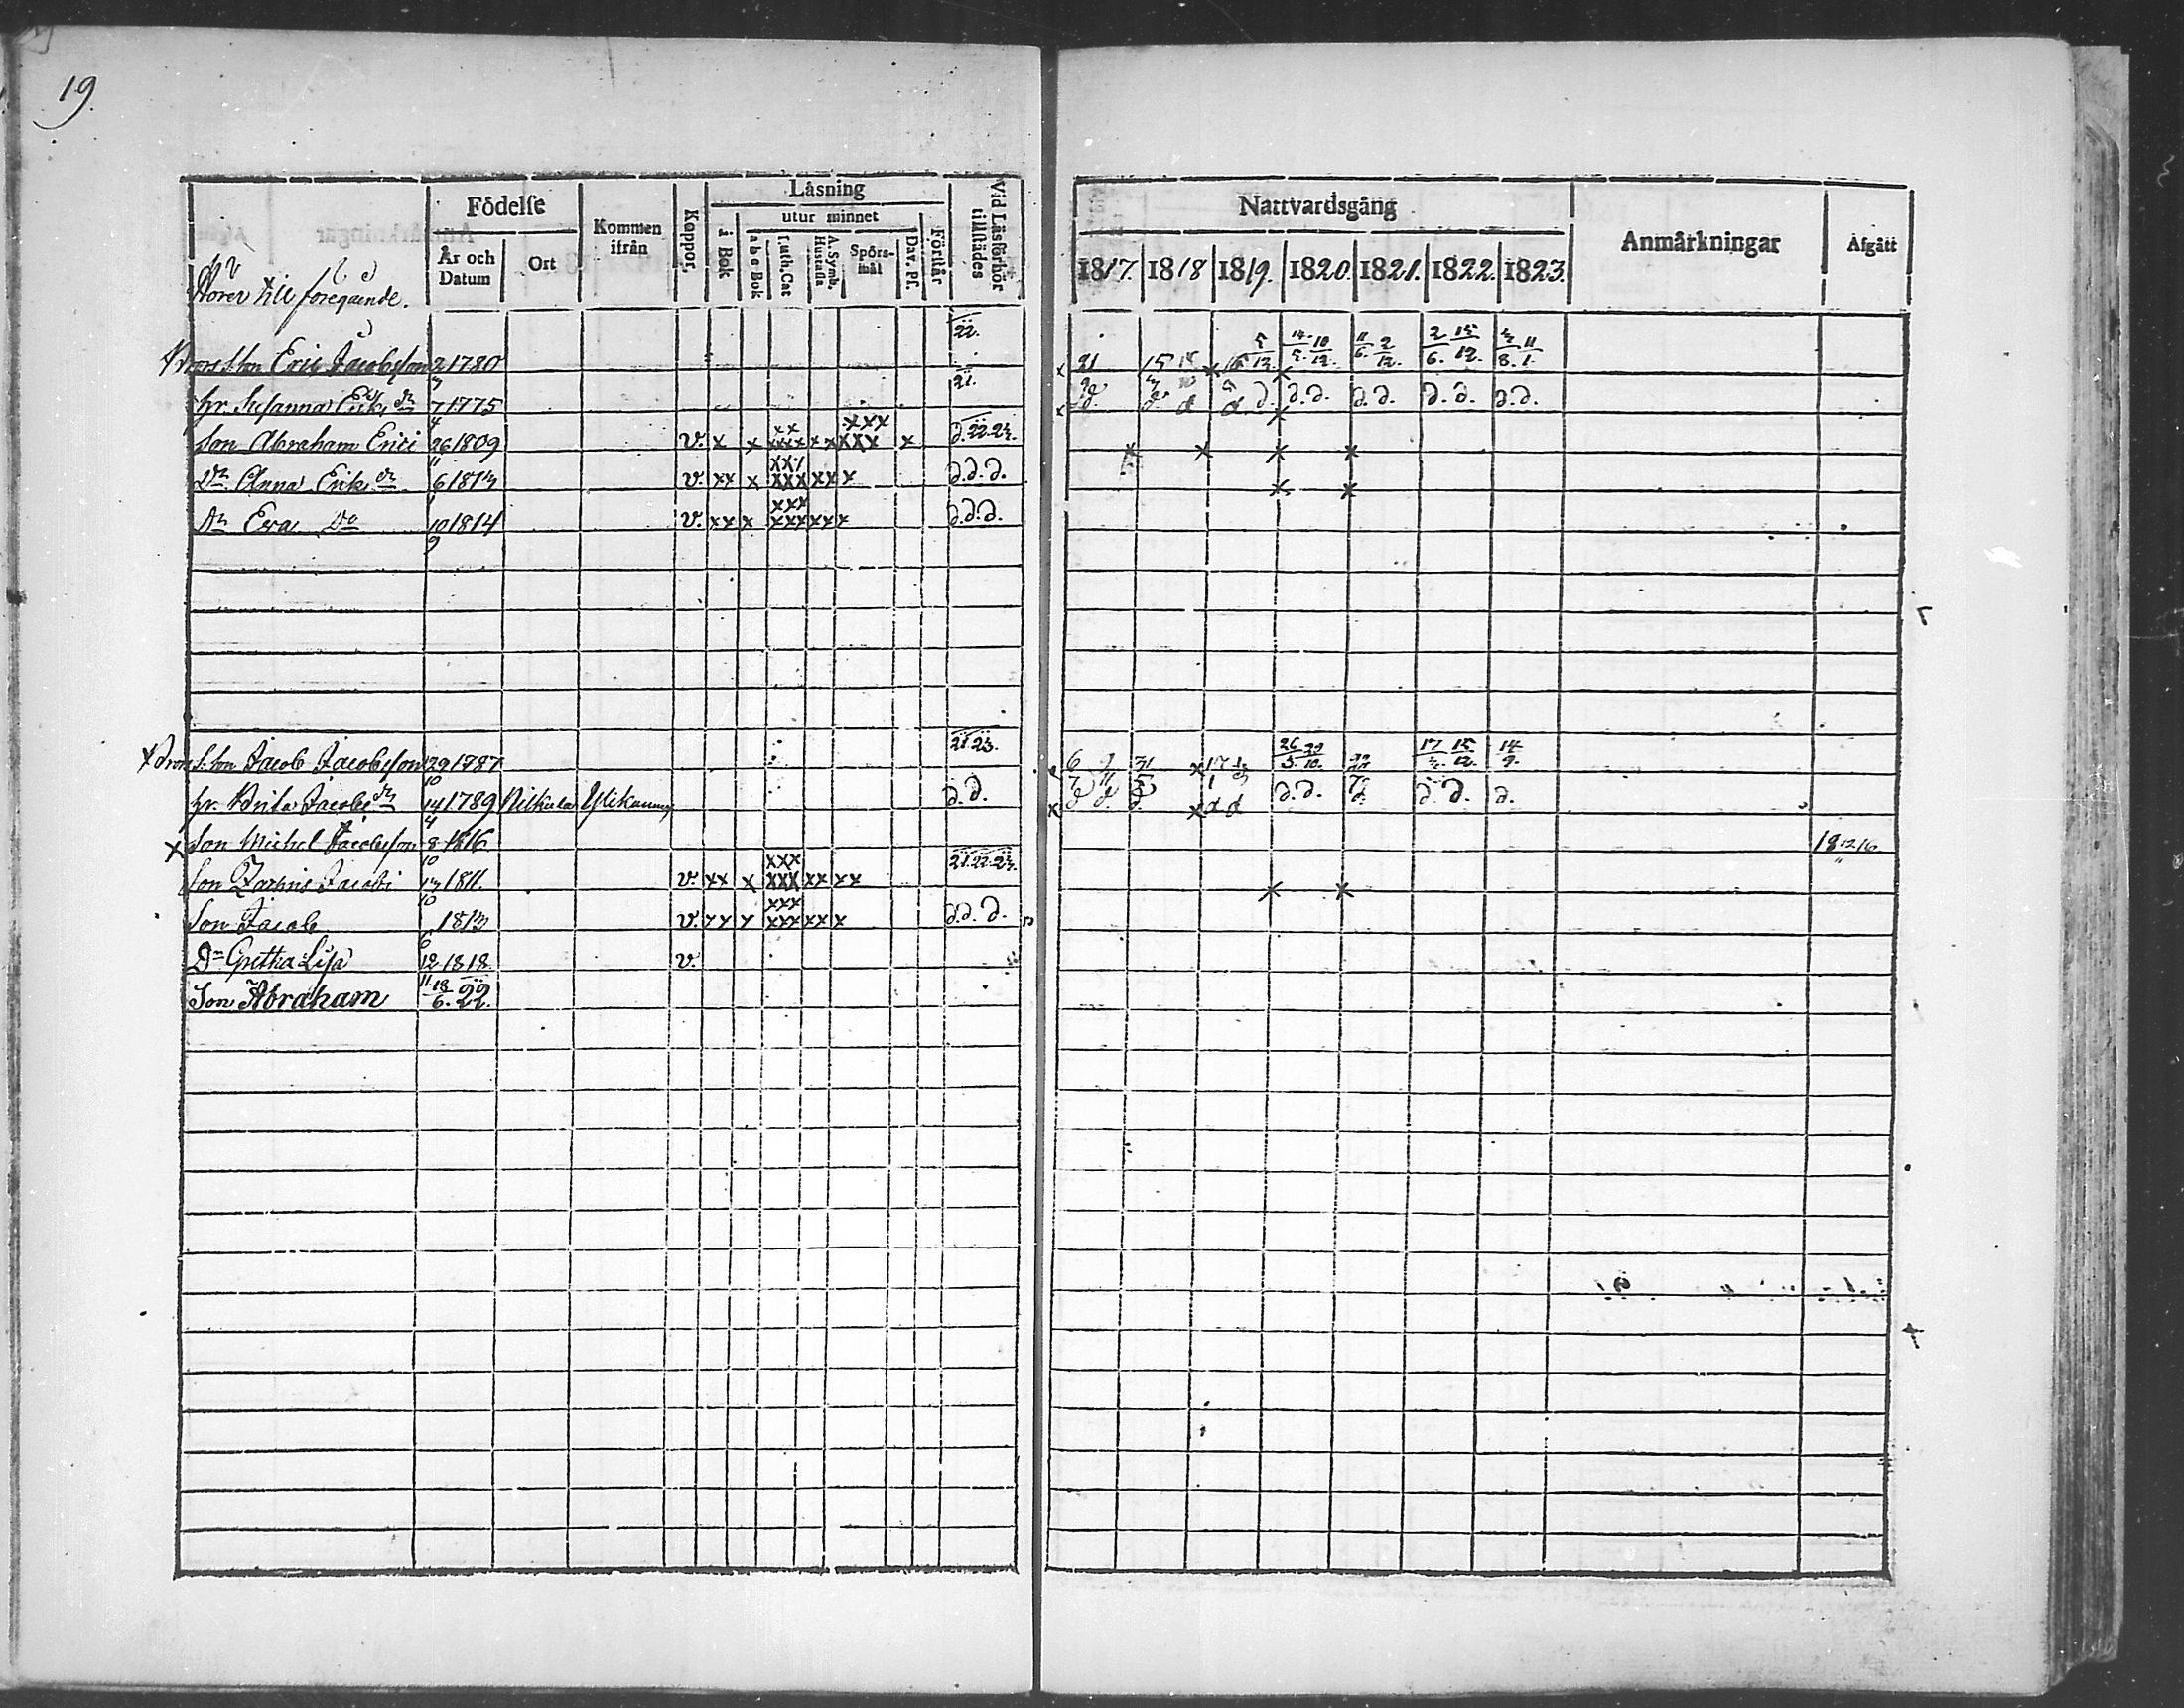 19.
Födelse
Kommen ifrån
Koppor.
Läsning
utur minnet
Vid Läsförhör tillstädes
År och Datum
Ort
i Bok
a b c Bok
Luth. Cat
A. Symb. Hustafla
Spörsmål
Dav. Ps.
Förstår
Nattvardsgång
Anmärkningar
Afgått
1817. 1818 1819. 1820. 1821. 1822. 1823.
Hörer till föregående.
Eric Jacobsson 2 1780 22. 21 15 5/12 10/12. 11/6. 2/12. 2/6. 15/12. 11/1.
3
hr Susanna Eriks dr 7 1775 21. d. d. d d d. d. d. d. d. d. d. d. d.
4
Son Abraham Erici 26 1809 v. x x xx xxxx x x xxx xxx x d. 22. 23. x x x x
11
Dr Anna Eriks dr 6 1813 v. xx x xxx xxx xx x d. d. d. x x
1
Dr Eva Do 10 1814 v. xx x xxx xxx xx x d. d. d.
9
Son Jacob Jacobsson 29 1787 21. 23. 6 9 31 x 17 26/5. 29/10. 17 15/12. 14/9.
10
hr. Brita Jacobs dr 14 1789 d. d. x d d. d. x d d d. d. d. d. d. d.
4
x Son Michel Jacobsson 8 1816 18 12/11 16
10
Son Zachris Jacobi 13 1811. v. xx x xxx xxx xx xx 21. 22. 23. x x
10
Son Jacob 1813 v. xx x xxx xxx xx x d. d. d.
6
Dr Gretha Lisa 12 1818 v.
11
Son Abraham 18/6. 22.